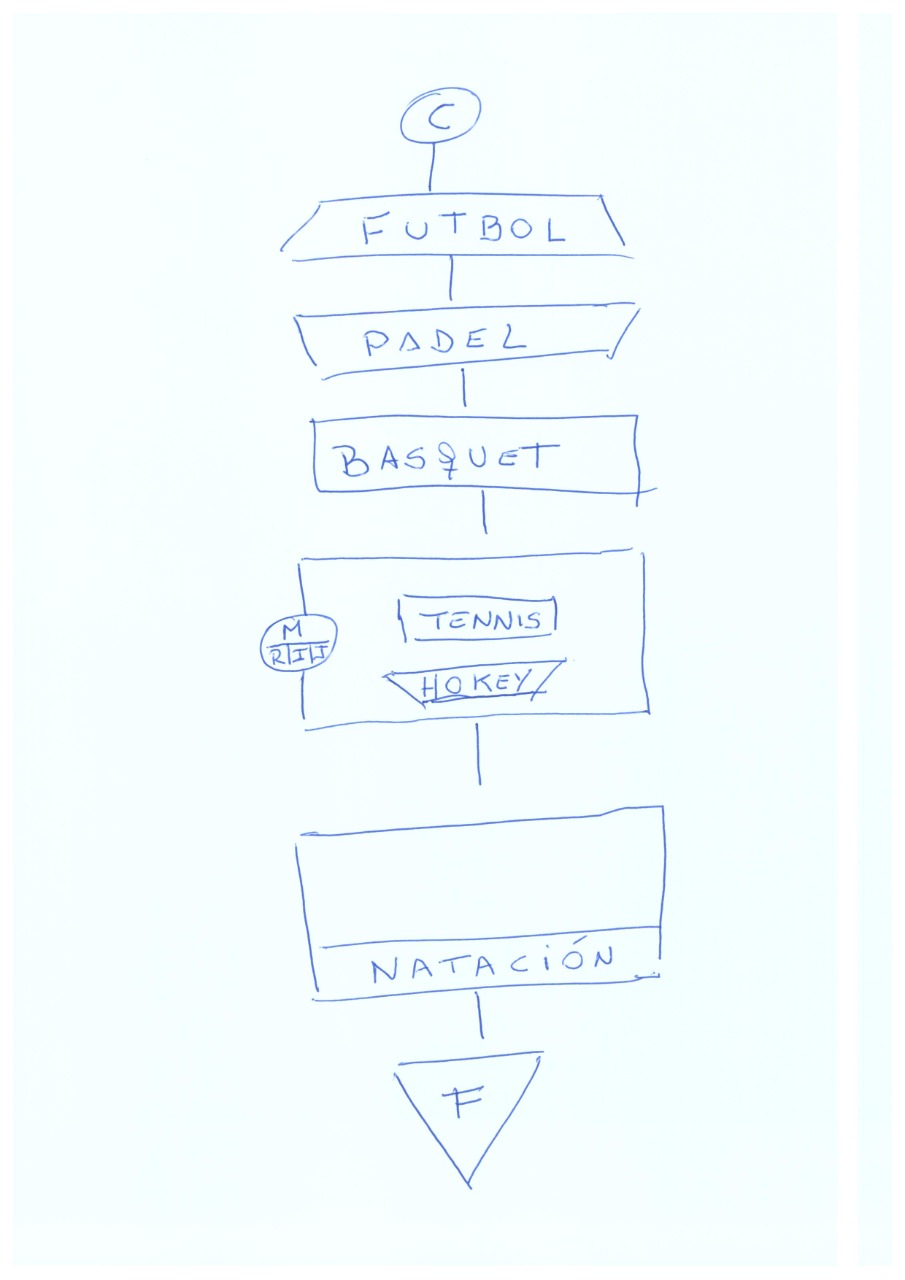 C
FUTBOL
PADEL
BASQUET
TENNIS
M
R|I|J
HOKEY
NATACIÓN
F